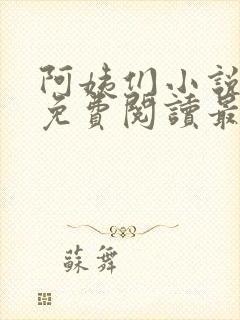 阿姨们小說
免費閱讀最
蘇舞